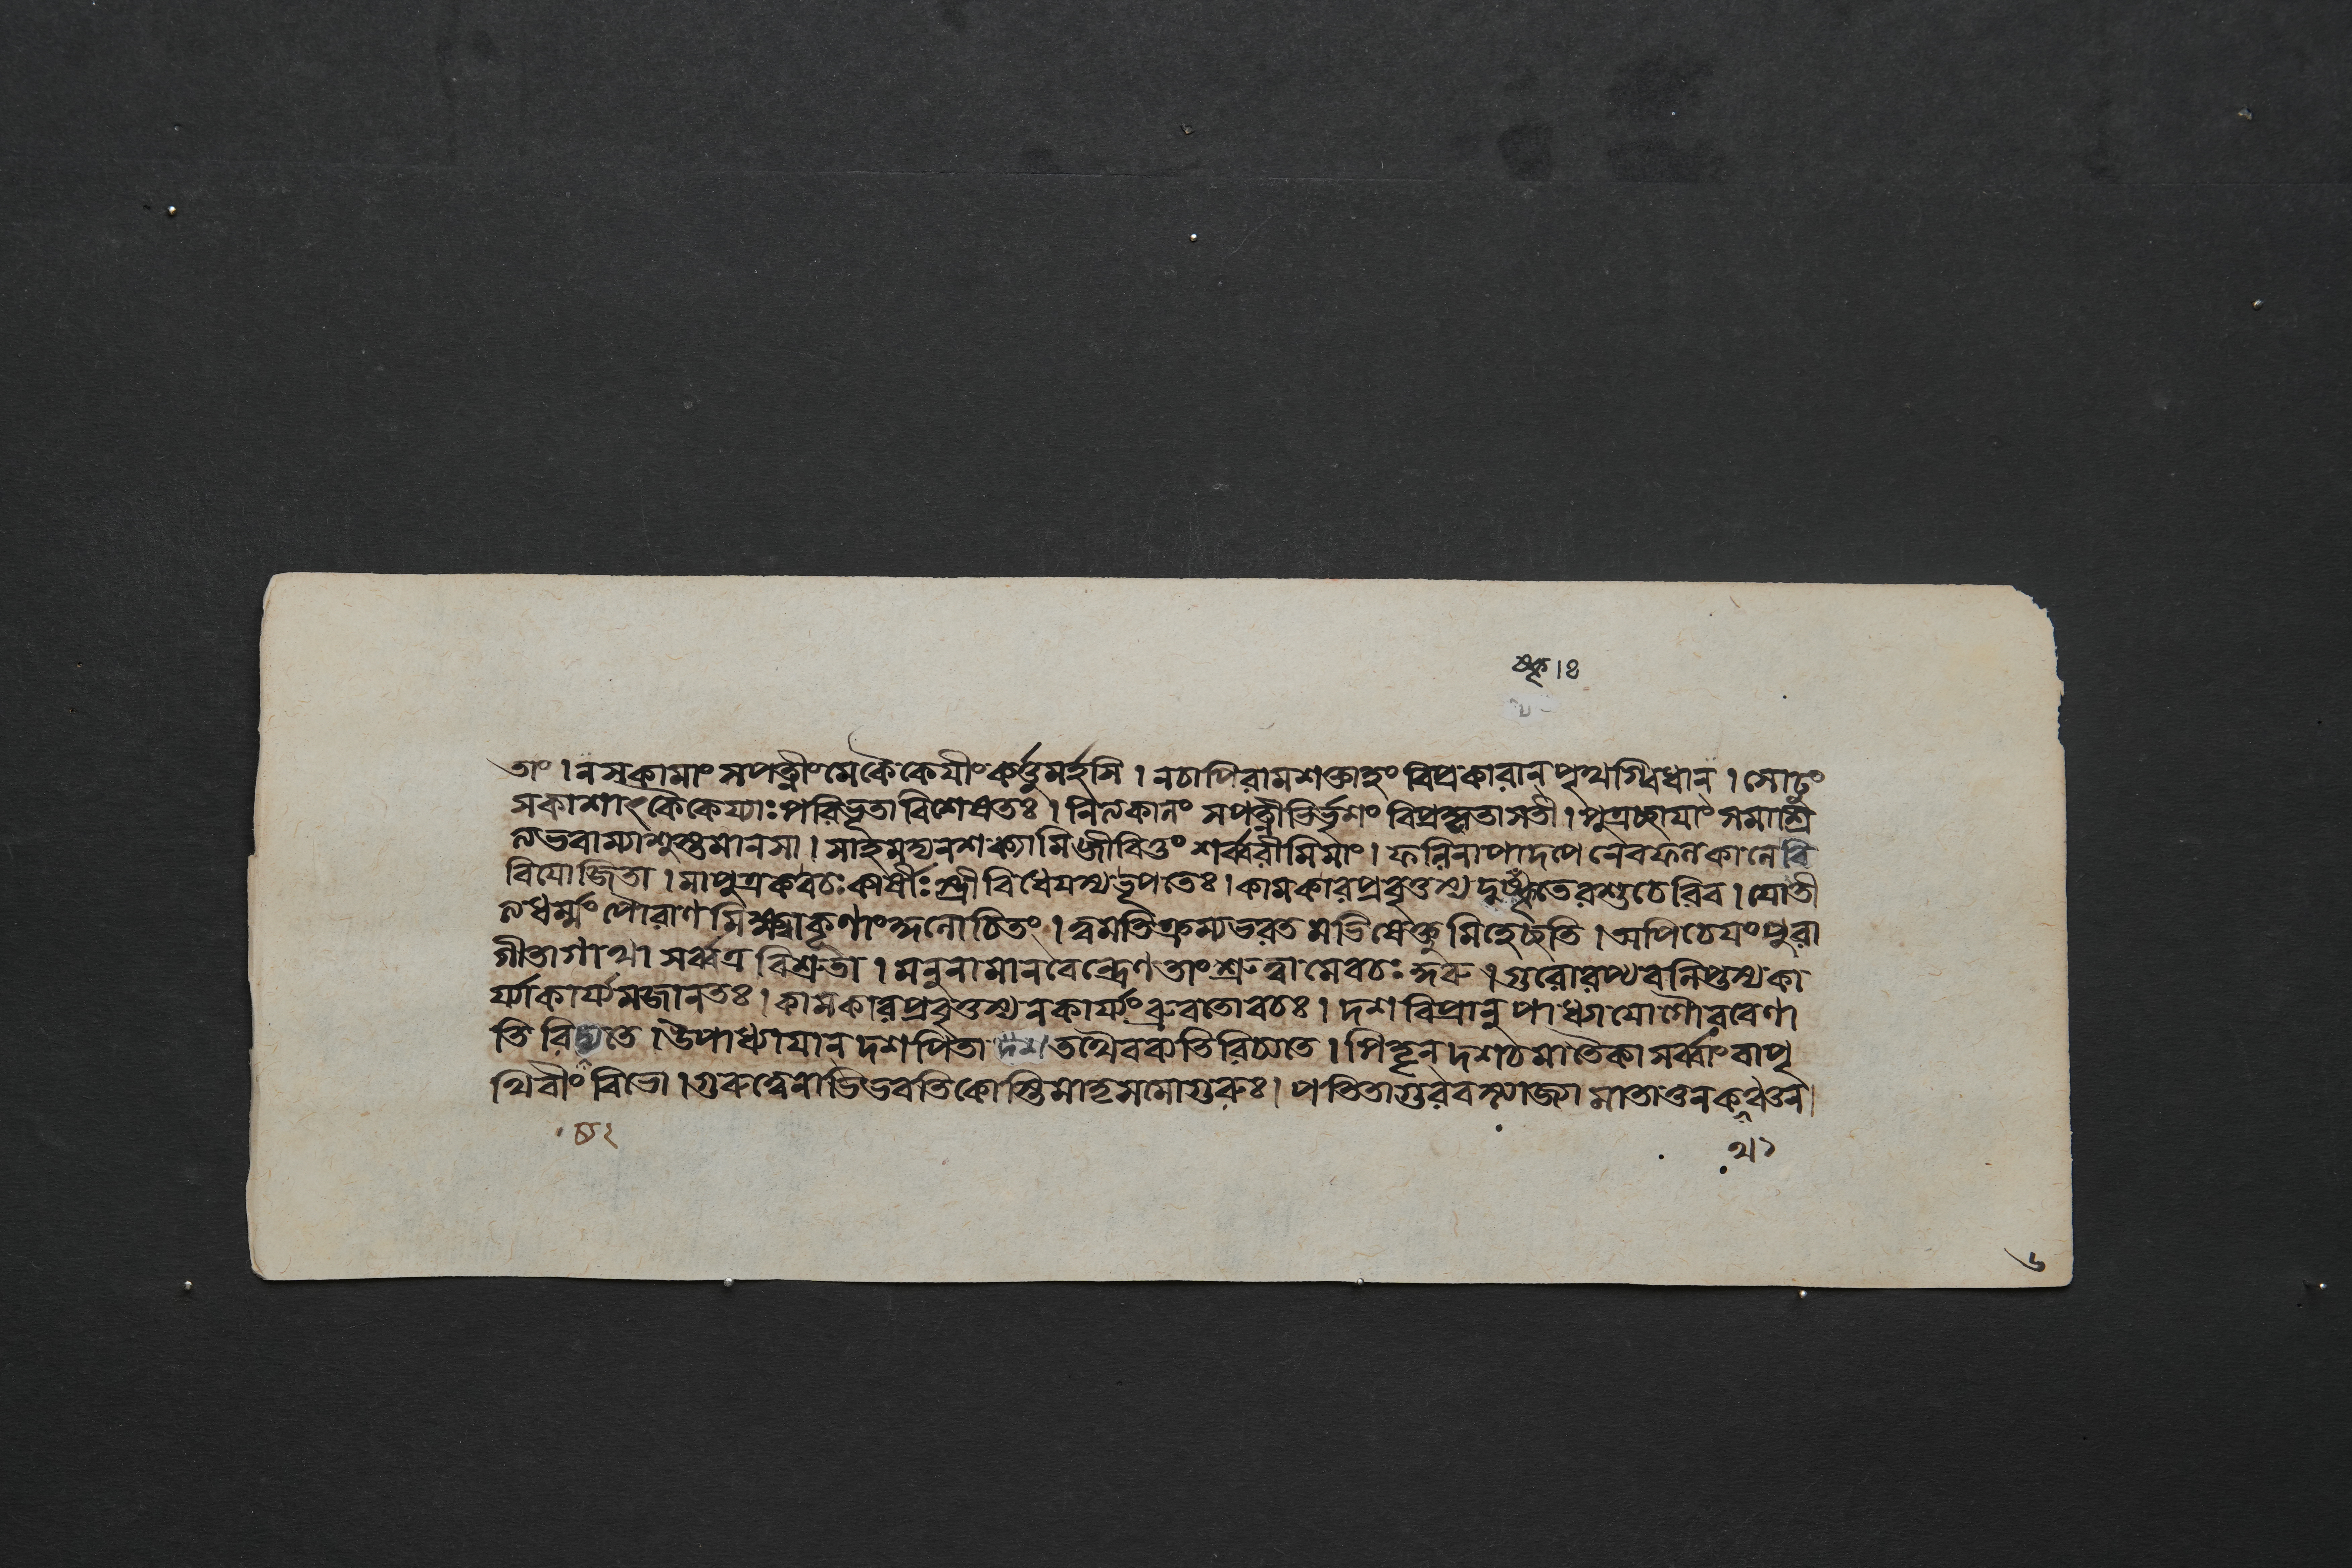 ষ্কৃ।ঃ
তাং। ন সকামাং সপত্নীং মে কৈকেয়ীং কর্ত্তুমর্হসি। ন চাপি রাম শক্তাহং বিপ্রকারান্ পৃথগ্বিধান্। সোঢুং
সকাশাৎ কৈকেয্যাঃ পরিভূতা বিশেষতঃ। নিত্যকালং সপত্নীভির্ভৃশং বিপ্রকৃতা সতী। পুত্রচ্ছায়াং সমাশ্রি
ত্য ভবাম্যাশ্বস্তমানসা। সাহমদ্য ন শক্ষ্যামি জীবিতুং শর্ব্বরীমিমাং। ফলিনা পাদপেনেব ফলকালে বি
বিযোজিতা। মা পুত্রক বচঃ কার্ষীঃ স্ত্রীবিধেয়স্য ভূপতেঃ। কামকারপ্রবৃত্তস্য দুষ্কৃতেরশুচেরিব। যোতী
ত্য ধর্ম্মং পৌরাণমিক্ষ্বাকূণাং কুলোচিতং। ত্বামতিক্রম্য ভরতমভিষেক্তুমিহেচ্ছতি। অপি চেয়ং পুরা
গীতা গাথা সর্ব্বত্র বিশ্রুতা। মনুনা মানবেন্দ্রেণ তাং শ্রুত্বা মে বচঃ কুরু। গুরোরপ্যবলিপ্তস্য কা
র্য্যাকার্য্যমজানতঃ। কামকারপ্রবৃত্তস্য ন কার্য্যং ব্রুবতো বচঃ। দশ বিপ্রানুপাধ্যায়ো গৌরবেণা
তিরিচ্যতে। উপাধ্যায়ান্ দশ পিতা দশ তথৈব ব্যতিরিচ্যতে। পিতৄন্ দশ চ মাতৈকা সর্ব্বাং বা পৃ
থিবীং বিভো। গুরুত্বেনাভিভবতি কোস্তি মাতৃসমো গুরুঃ। পতিতা গুরবস্ত্যাজ্যা মাতা তু ন কথঞ্চন।
থ১
৬